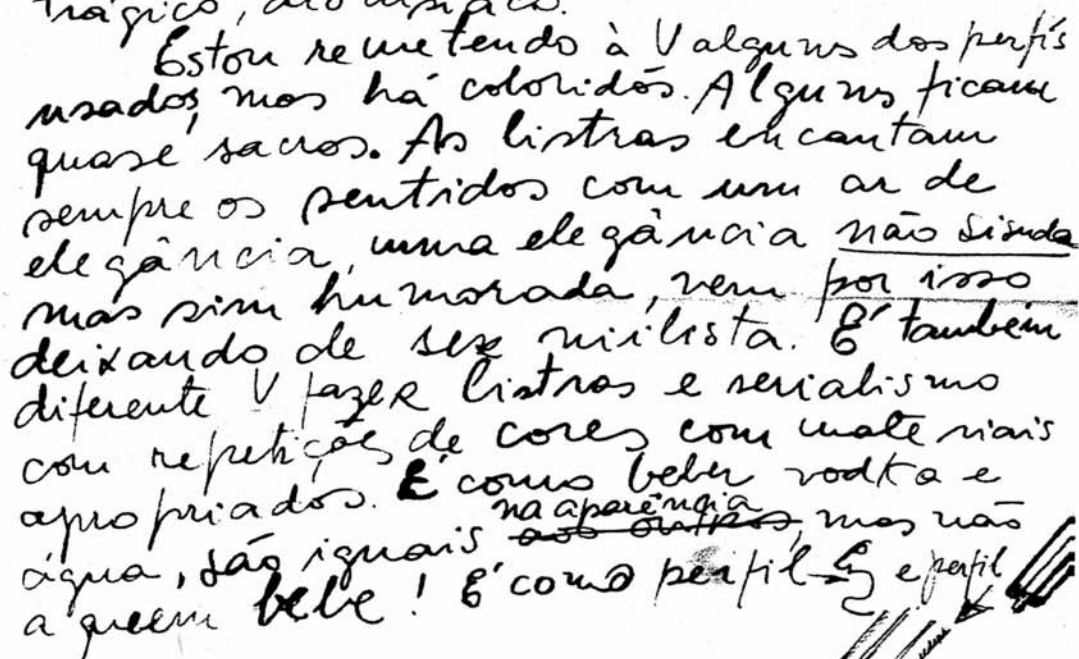 trágico, dionisíaco.
Estou remetendo à V alguns dos perfís
usados, mas há coloridos. Alguns ficam
quase sacros. As listras encantam
sempre os sentidos com um ar de
elegância, uma elegância não sisuda
mas sim humorada, vem por isso
deixando de ser niilista. É também
diferente V fazer listras e serialismo
com repetições de cores com materiais
apropriados. É como beber vodka e
na aparência
água, são iguais aos outros, mas não
a quem bebe! É como perfil e perfil